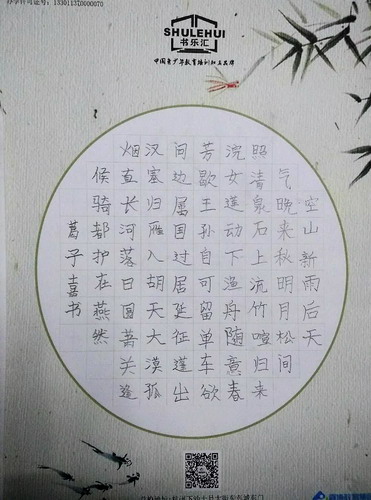 证号：133011370000070
SHULEHUI
书乐汇
中国青少年教育培训知名品牌
空山新雨后天
气晚来秋明月松间
照清泉石上流竹喧归来
浣女莲动下渔舟随意春
芳歇王孙自可留单车欲
问边属国过居延征蓬出
汉塞归雁入胡天大漠孤
烟直长河落日圆萧关逢
候骑都护在燕然
葛子嘉书